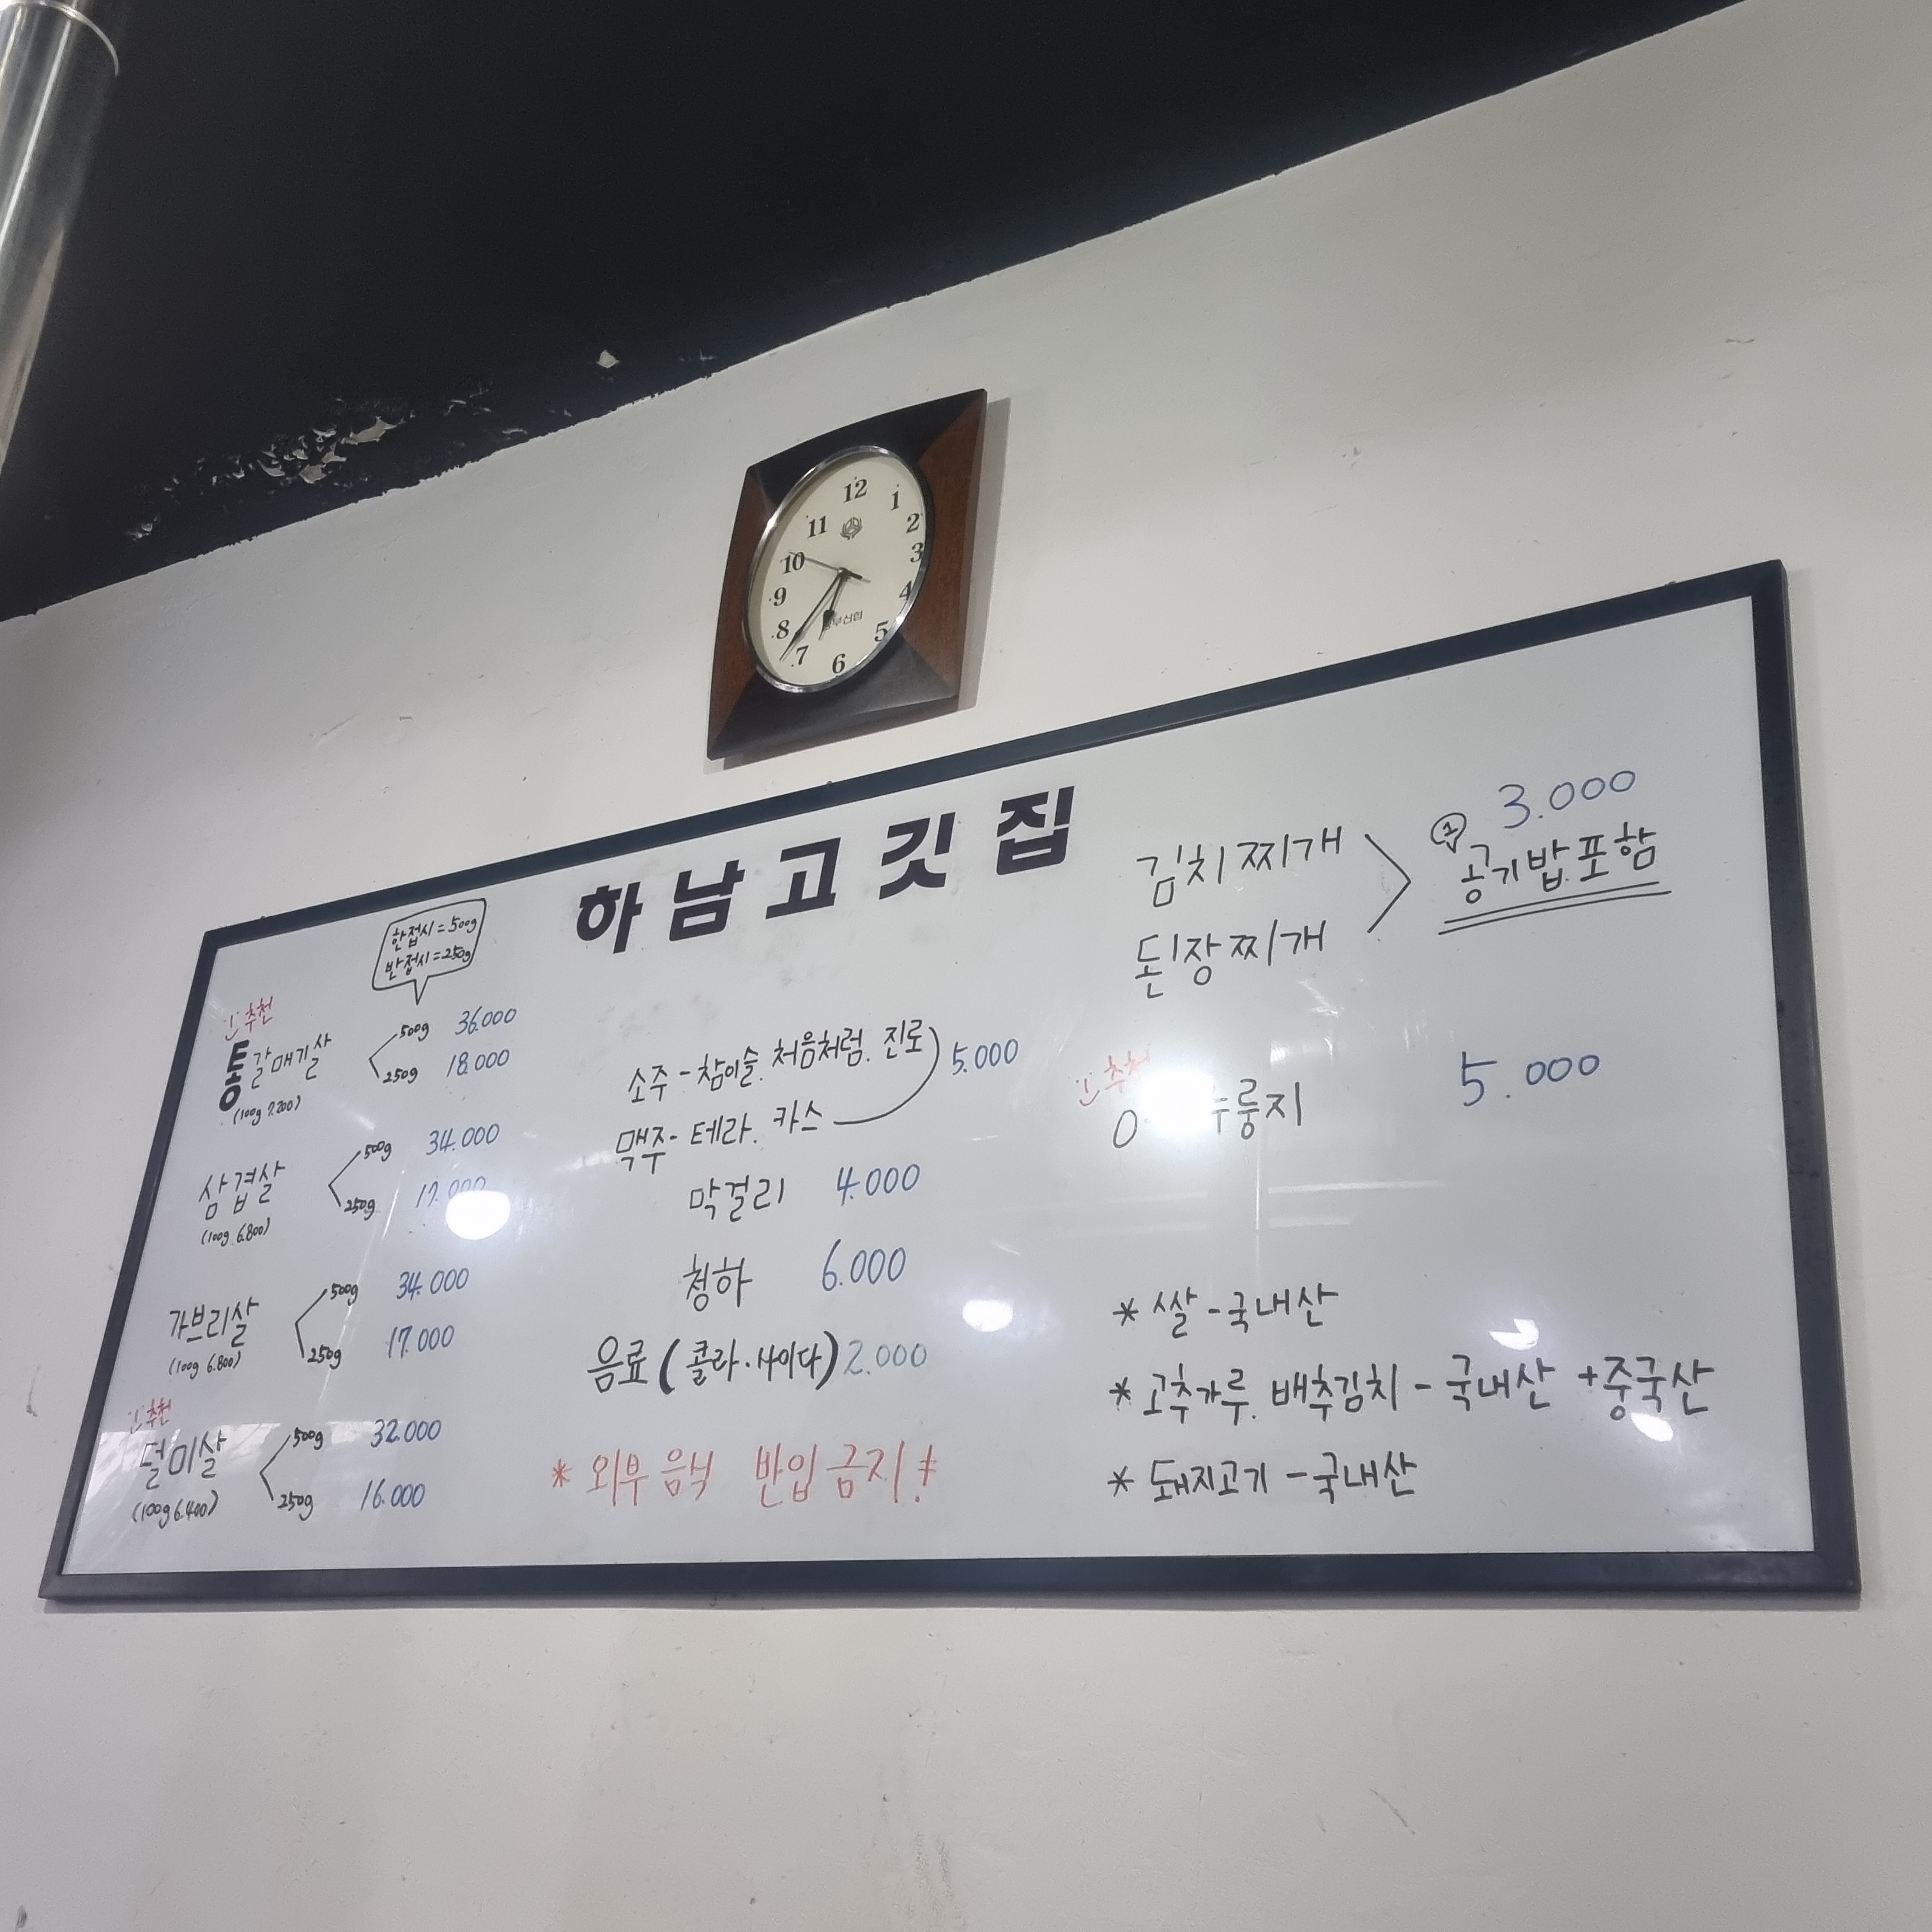 12
1
2
3
4
5
6
7
8
9
10
11
하남고깃집
한접시=500g
반접시=250g
추천
통갈매기살
(100g 7.200)
500g 36.000
250g 18.000
삼겹살
(100g 6.800)
500g 34.000
250g 17.000
가브리살
(100g 6.800)
500g 34.000
250g 17.000
추천
덜미살
(100g 6.400)
500g 32.000
250g 16.000
소주-참이슬. 처음처럼. 진로
맥주-테라. 카스
5.000
막걸리 4.000
청하 6.000
음료(콜라.사이다) 2.000
* 외부음식 반입금지!
김치찌개
된장찌개
3.000
공기밥.포함
추천
5.000
* 쌀-국내산
* 고추가루. 배추김치-국내산+중국산
* 돼지고기-국내산